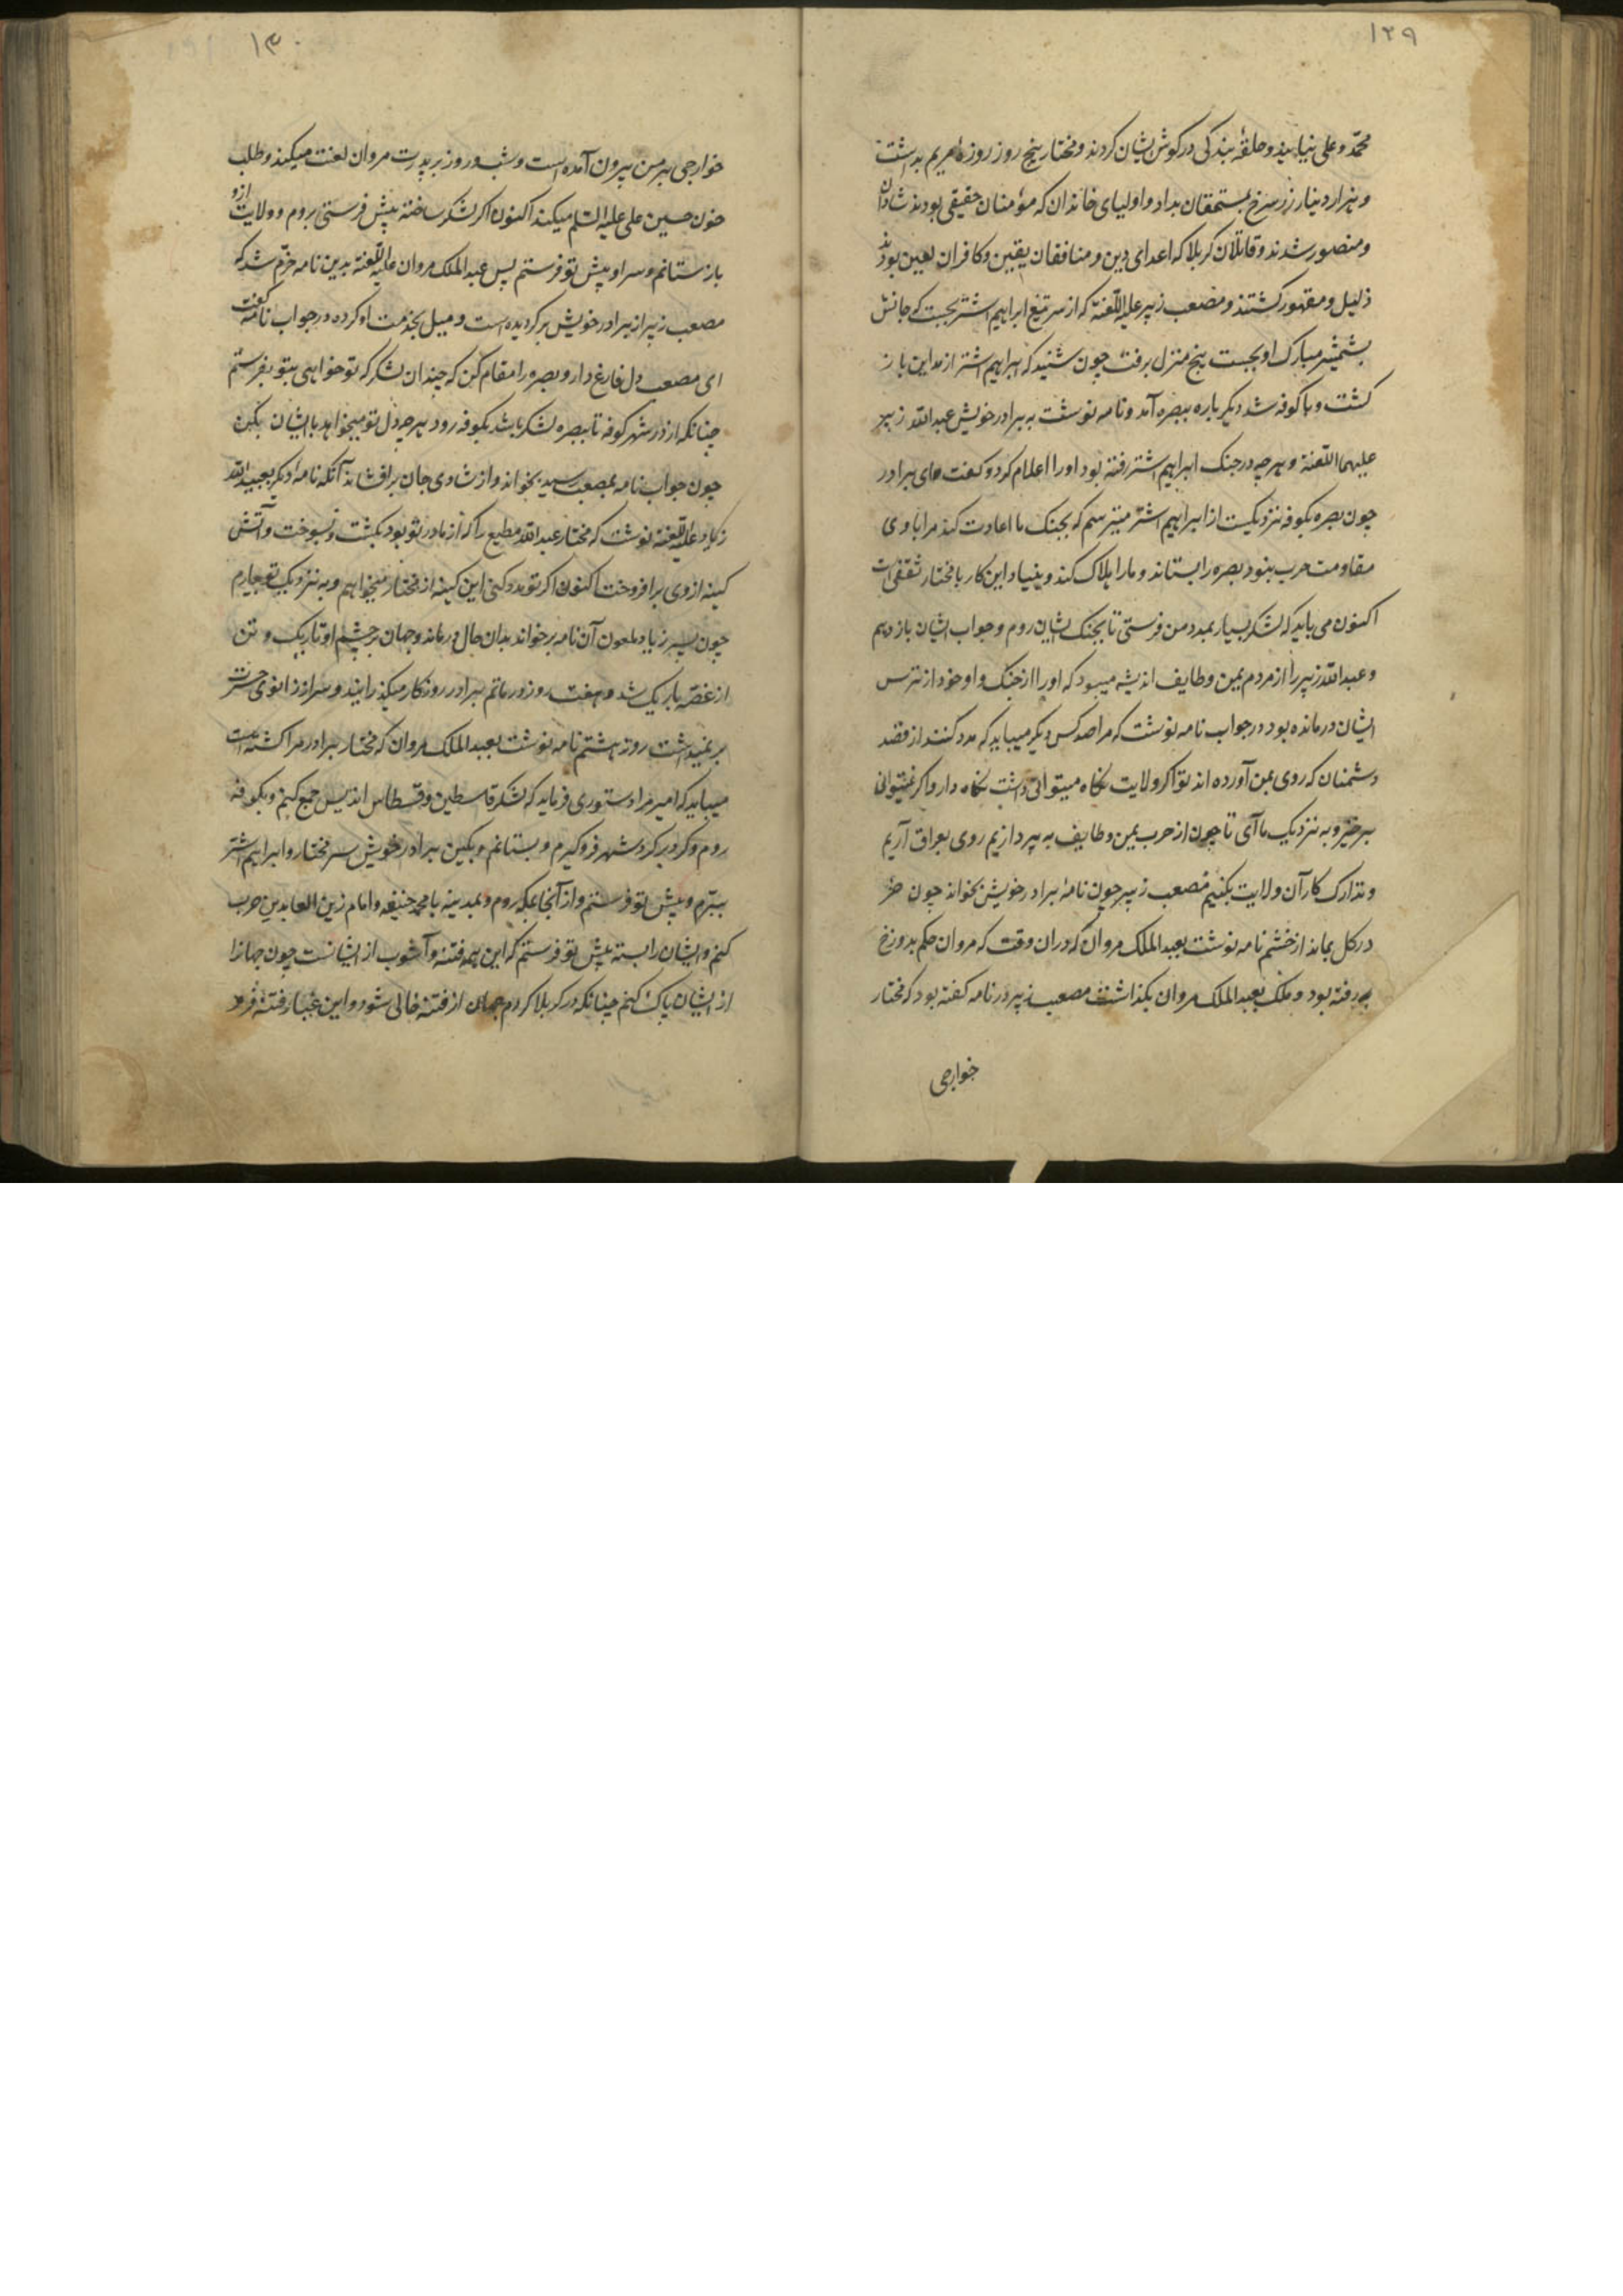 ۱۲۹
محمد و علی بنیا بید و حلقهٔ بندکی در کوش ایشان کردند و مختار پنج روز روزهٔ مریم بداشت
و هزار دینار زر سرخ بمستحقان بداد و اولیای خاندان که مؤمنان حقیقی بودند شادان
و منصور شدند و قاتلان کربلا که اعدای دین و منافقان یقین و کافران لعین بودند
ذلیل و مقهور کشتند و مصعب زبیر علیه اللعنة که از سر تیغ ابراهیم اشتر بجست که جانش
بشمشیر مبارک او بجست پنج منزل برفت چون شنید که ابراهیم اشتر از مداین باز
کشت و با کوفه شد دیکر باره ببصره آمد و نامه نوشت به برادر خویش عبد الله زبیر
علیهما اللعنة و هر چه در جنک ابراهیم اشتر رفته بود او را اعلام کرد و کفت ای برادر
چون بصره بکوفه نزدیکست از ابراهیم اشتر میترسم که بجنک ما اعادت کند مرا با وی
مقاومت حرب بنود بصره را بستاند و ما را هلاک کند و بنیاد این کار با مختار ثقفی است
اکنون می باید که لشکر بسیار بمدد من فرستی تا بجنک ایشان روم و جواب ایشان باز دهم
و عبد الله زبیر را از مردم یمن و طایف اندیشه میبود که او را از جنک و او خود از ترس
ایشان درمانده بود در جواب نامه نوشت که مرا صد کس دیکر میباید که مدد کنند از قصد
دشمنان که روی بمن آورده اند تو اکر ولایت نکاه میتوانی داشت نکاه دار و اکر نمیتوانی
برخیز و به نزدیک ما آی تا چون از حرب یمن و طایف به پردازیم روی بعراق آریم
و تدارک کار آن ولایت بکنیم مصعب زبیر چون نامهٔ برادر خویش بخواند چون خر
در کل بماند از خشم نامه نوشت بعبد الملک مروان که دران وقت که مروان حکم بدوزخ
به رفته بود و ملک بعبد الملک مروان بکذاشت مصعب زبیر در نامه کفته بود که مختار
خوارجی
۱۳۰
خوارجی بر من بیرون آمده است و شب و روز بر پدرت مروان لعنت میکند و طلب
خون حسین علی علیه السلم میکند اکنون اکر لشکر ساخته پیش فرستی بروم و ولایت ازو
باز ستانم و سر او پیش تو فرستم پس عبد الملک مروان علیه اللعنة بدین نامه خرّم شد که
مصعب زبیر از برادر خویش بر کردیده است و میل بخدمت او کرده در جواب نامه کفت
ای مصعب دل فارغ دار و بصره را مقام کن که چندان لشکر که تو خواهی بتو بفرستم
چنانکه از در شهر کوفه تا ببصره لشکر باشد بکوفه رود هر چه دل تو میخواهد با ایشان بکن
چون جواب نامه بمصعب رسید بخواند و از شادی جان بر افشاند آنکه نامهٔ دیکر بعبید الله
زیاد علیه اللعنة نوشت که مختار عبد الله مطیع را که از مادر تو بود بکشت و بسوخت و آتش
کینه از وی برافروخت اکنون اکر تو مدد کنی این کینه از مختار میخواهم و به نزدیک تو می آرم
چون پسر زیاد ملعون آن نامه برخواند بدان حال درماند و جهان بر چشم او تاریک و تن
از غصّه باریک شد و هفت روز در ماتم برادر روزکار میکذرانید و سر از زانوی حسرت
بر نمیداشت روز هشتم نامه نوشت بعبد الملک مروان که مختار برادر مرا کشته است
میباید که امیر مرا دستوری فرماید که لشکر قاسطین و قسطاس اندلیس جمع کنم و بکوفه
روم و کرد بر کرد شهر فرو کیرم و بستانم و بکین برادر خویش سر مختار و ابراهیم اشتر
ببرّم و پیش تو فرستم و از آنجا بمکه روم و بمدینه با محمد حنیفه و امام زین العابدین حرب
کنم و ایشان را بسته پیش تو فرستم که این همه فتنه و آشوب از ایشانست چون جهانرا
از ایشان پاک کنم چنانکه در کربلا کردم جهان از فتنه خالی شود و این غبار فتنه فرو